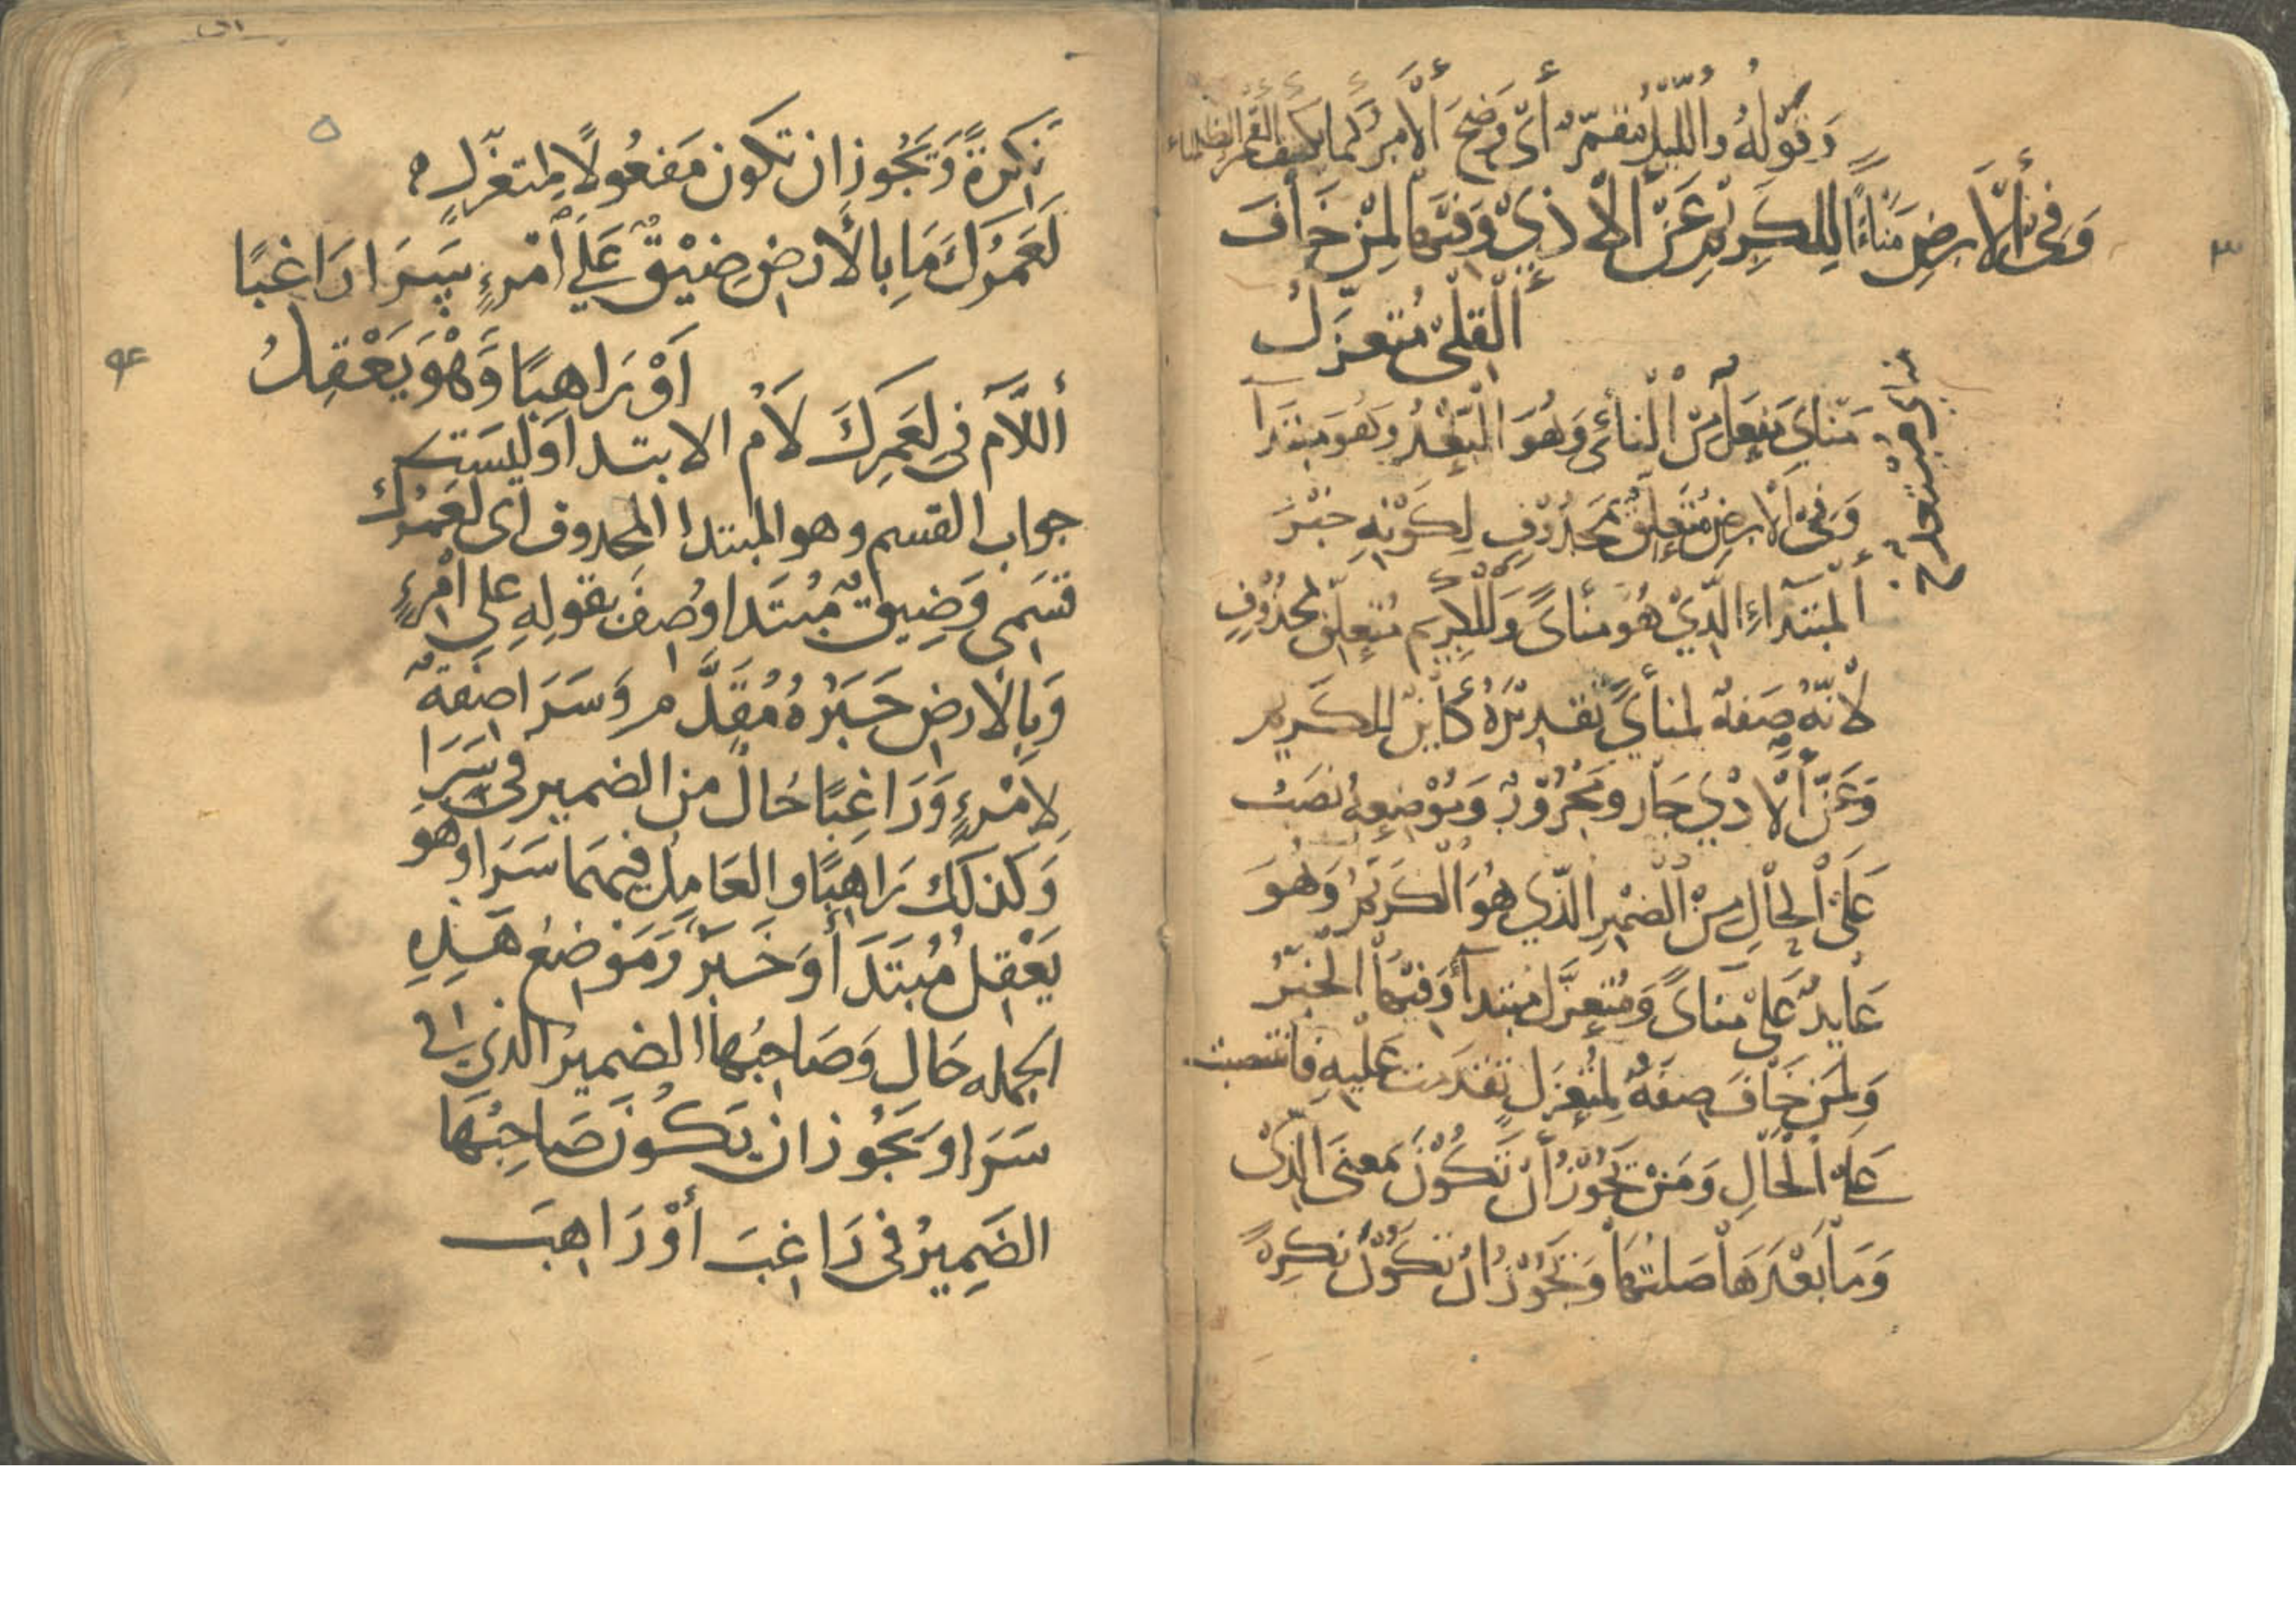 وَقَوْلُهُ وَاللَّيْلُ مُقْمِرٌ أَيْ وَضَحَ الْأَمْرُ كَمَا يَكْشِفُ الْقَمَرُ الظَّلْمَاء
وَفِي الْأَرْضِ مَنْأًى لِلْكَرِيمِ عَنِ الْأَذِيْ وَفِيْهَا لِمَنْ خَافَ
الْقِلَى مُتَعَزَّلُ
مَنْأَى مَفْعَلٌ مِنَ النَّأْىِ وَهُوَ الْبُعْدُ وَهُوَ مُبْتَدَآ
وَفِي الْأَرْضِ مُتَعَلِّقٌ بِمَحْذُوْفٍ لِكَوْنِهِ خَبَرَ
الْمُبْتَدَاءِ الَّذِيْ هُوَ مَنْأًى وَلِلْكَرِيْمِ مُتَعَلِّقٌ بِمَحْذُوْفٍ
لِأَنَّهُ صِفَةٌ لِمَنْأًى تَقْدِيْرُهُ كَائِنٌ لِلْكَرِيمِ
وَعَنِ الْأَذِيْ جَار وَمَجْرُوْرٌ وَمَوْضِعِهُ نَصَبُ
عَلَى الْحَالِ مِنَ الضَّمِيْرِ الَّذِي هُوَ الْكَرِيْمُ وَهُوَ
عَايِدٌ عَلَى مَنْأًى وَمُتَعَزَّل مُبْتَدَأ وَفِيْهَا الْخَبَرُ
وَلِمَنْ خَافَ صِفَةٌ لِمُتَعَزَّل تَقَدَّمَتْ عَلَيْهِ فَانْتَصَبَتْ
عَلَى الْحَالِ وَمَنْ يَجُوْزُ أَنْ تَكُوْنَ بِمَعْنَى الَّذِى
وَمَا بَعْدَهَا صِلَتُهَا وَيَجُوْزُ انْ تَكُوْنَ نَكِرَةً
٣
٥
نَكِرَةً وَيَجُوز ان تكون مَفعُولًا لِمتعزّلٍ
لَعَمْرُكَ مَا بِالأَرْضِ ضِيْقٌ عَلَى امْرءٍ سَرَا رَاغِبًا
اَوْ رَاهِبًا وَهْوَ يَعْقِلُ
أللَّام فى لعَمرك لَامُ الابتدا وليسَت
جواب القسم وهو المبتدا المحدوف اى لعَمرُك
قسَمى وَضِيقٌ مُبْتَدَا وُصِفَ بقولِهِ على امْرءٍ
وَبِالارضِ خَبَرُهُ مُقَدَّم وَسَرَا صِفَةٌ
لِامْرءٍ وَرَاغِبًا حَال من الضمير فى سَرَا
وَكذلك رَاهِبًا والعَامِل فيهمَا سَرَا وهو
يَعْقِلُ مُبْتَدَأ وَخَبَرٌ وَمَوْضعُ هَذِهِ
الجمله حَال وَصَاحِبُها الضميرُ الذي فى
سَرَا وَيَجُوز ان يَكُونَ صَاحِبُهَا
الضَمِيرُ فى رَاغِبَ أوْ رَاهِبَ